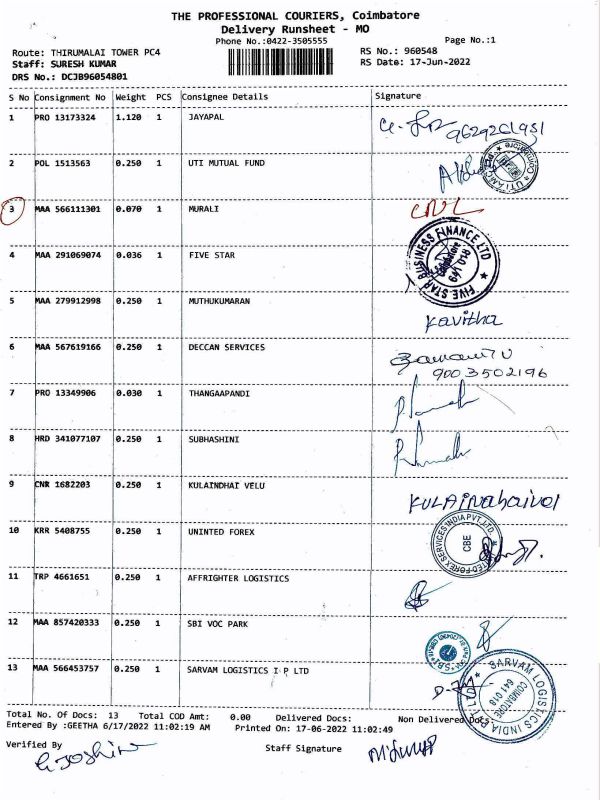 THE PROFESSIONAL COURIERS, Coimbatore
Delivery Runsheet - MO
Phone No.:0422-3505555
Page No.:1
Route: THIRUMALAI TOWER PC4
RS No.: 960548
Staff: SURESH KUMAR
RS Date: 17-Jun-2022
DRS No.: DCJB96054801
S No Consignment No Weight PCS Consignee Details Signature
1 PRO 13173324 1.120 1 JAYAPAL
2 POL 1513563 0.250 1 UTI MUTUAL FUND
3 MAA 566111301 0.070 1 MURALI
4 MAA 291069074 0.036 1 FIVE STAR
FIVE STAR BUSINESS FINANCE LTD
Coimbatore
641 018
5 MAA 279912998 0.250 1 MUTHUKUMARAN
Kavitha
6 MAA 567619166 0.250 1 DECCAN SERVICES
9003502196
7 PRO 13349906 0.030 1 THANGAAPANDI
8 HRD 341077107 0.250 1 SUBHASHINI
9 CNR 1682203 0.250 1 KULAINDHAI VELU
10 KRR 5408755 0.250 1 UNINTED FOREX
CBE
11 TRP 4661651 0.250 1 AFFRIGHTER LOGISTICS
12 MAA 857420333 0.250 1 SBI VOC PARK
13 MAA 566453757 0.250 1 SARVAM LOGISTICS I P LTD
SARVAM LOGISTICS INDIA
COIMBATORE
641 018
Total No. Of Docs: 13 Total COD Amt: 0.00 Delivered Docs: Non Delivered Docs:
Entered By :GEETHA 6/17/2022 11:02:19 AM Printed On: 17-06-2022 11:02:49
Verified By
Staff Signature